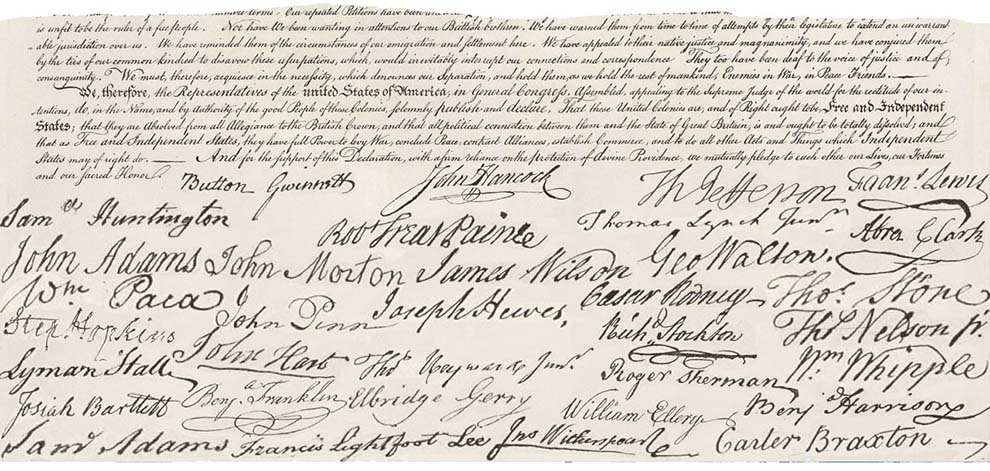 is unfit to be the ruler of a free people. Nor have We been wanting in attentions to our Brittish brethren. We have warned them from time to time of attempts by their legislature to extend an unwarrant-
able jurisdiction over us. We have reminded them of the circumstances of our emigration and settlement here. We have appealed to their native justice and magnanimity, and we have conjured them
by the ties of our common kindred to disavow these usurpations, which, would inevitably interrupt our connections and correspondence. They too have been deaf to the voice of justice and of
consanguinity. We must, therefore, acquiesce in the necessity, which denounces our Separation, and hold them, as we hold the rest of mankind, Enemies in War, in Peace Friends.
We, therefore, the Representatives of the united States of America, in General Congress, Assembled, appealing to the Supreme Judge of the world for the rectitude of our in-
tentions, do, in the Name, and by Authority of the good People of these Colonies, solemnly publish and declare, That these United Colonies are, and of Right ought to be Free and Independent
States; that they are Absolved from all Allegiance to the British Crown, and that all political connection between them and the State of Great Britain, is and ought to be totally dissolved; and
that as Free and Independent States, they have full Power to levy War, conclude Peace, contract Alliances, establish Commerce, and to do all other Acts and Things which Independent
States may of right do. — And for the support of this Declaration, with a firm reliance on the protection of divine Providence, we mutually pledge to each other our Lives, our Fortunes
and our Sacred Honor.
Button Gwinnett John Hancock Th Jefferson Frans. Lewis
Sam el Huntington Robt Treat Paine Thomas Lynch Junr. Abra Clark
John Adams John Morton James Wilson Geo Walton.
Wm Paca John Penn Joseph Hewes, Caesar Rodney Thos. Stone
Step. Hopkins John Hart Richd. Stockton Thos Nelson jr.
Lyman Hall Thos Heyward Junr. Roger Sherman Wm Whipple
Josiah Bartlett Benja. Franklin Elbridge Gerry William Ellery Benj Harrison
Saml Adams Francis Lightfoot Lee Jno Witherspoon Carter Braxton